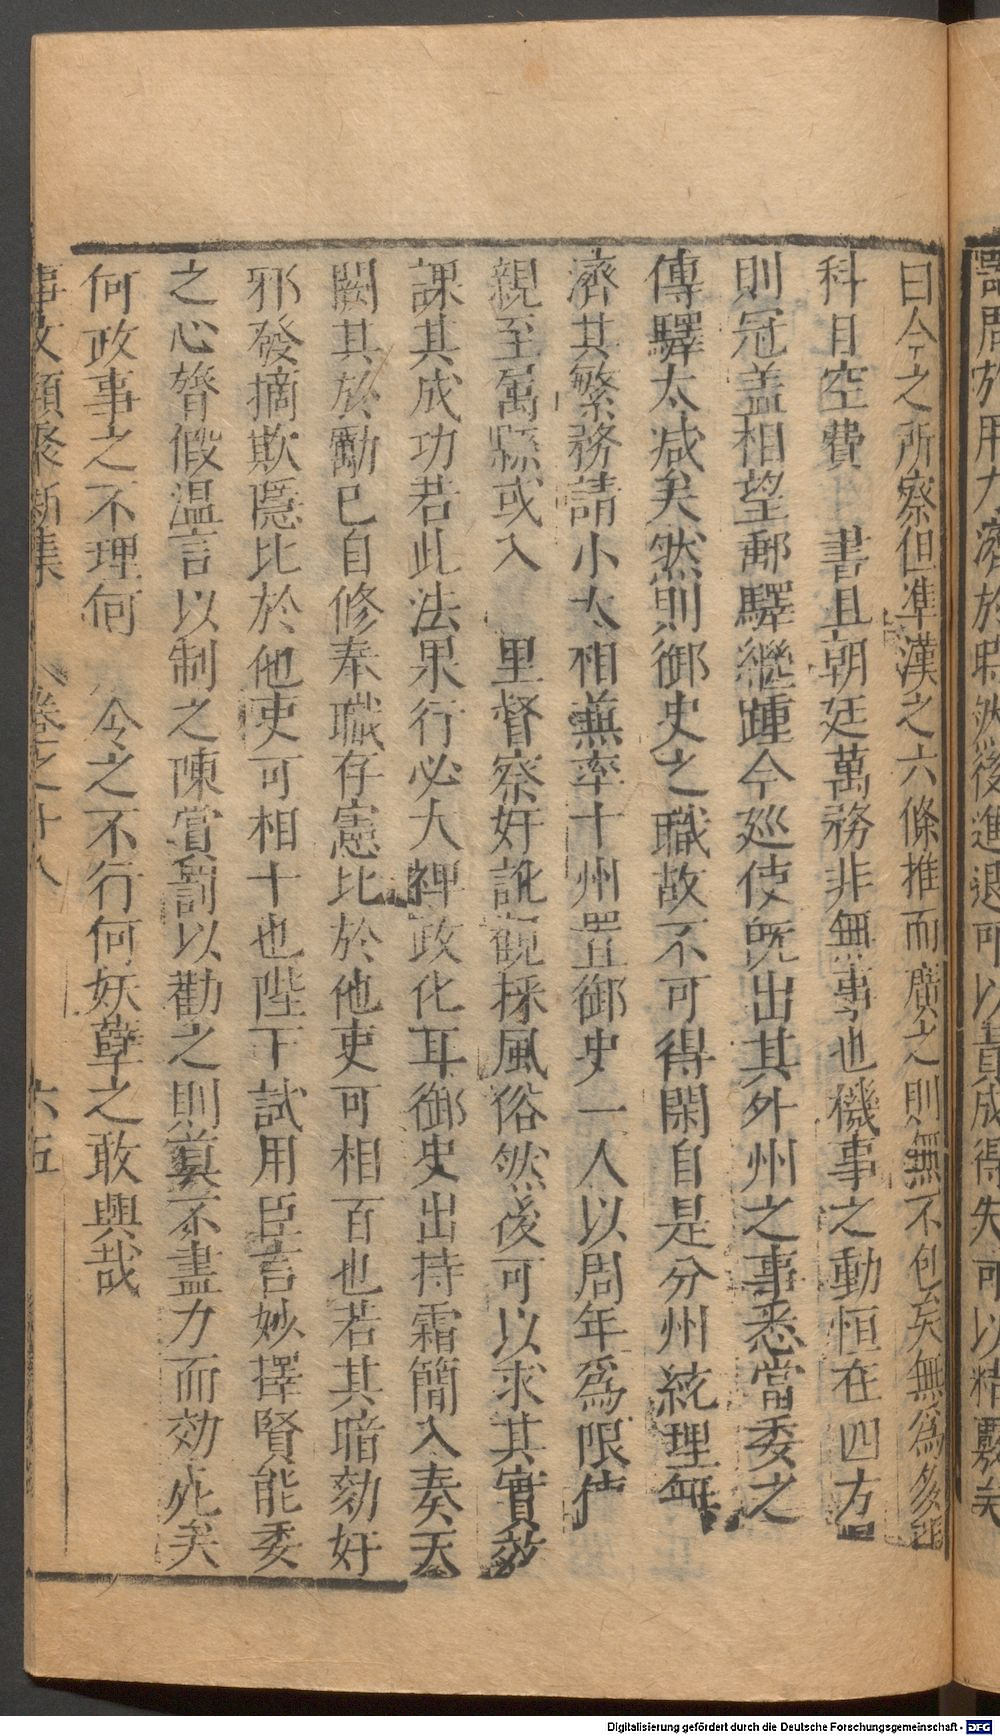 寄周於用大濟於時然後進退可以責成得失可以精覈矣
曰今之所察但準漢之六條推而廣之則無不包矣無爲多張
科目空費 書且朝廷萬務非無事也機事之動恒在四方
則冠盖相望郵驛繼踵今廵使旣出其外州之事悉當委之
傳驛太减矣然則御史之職故不可得閑自是分州統理無
濟其繁務請小大相兼率十州置御史一人以周年爲限使
親至屬縣或入 里督察奸訛觀採風俗然後可以求其實效
課其成功若此法果行必大裨政化耳御史出持霜簡入奏天
闕其於勵已自修奉職存憲比於他吏可相百也若其暗劾奸
邪發摘欺隱比於他吏可相十也陛下試用臣言妙擇賢能委
之心膂假温言以制之陳賞罰以勸之則莫不盡力而効死矣
何政事之不理何 令之不行何妖孽之敢興哉
事文類聚新集 卷之十八 六五
Digitalisierung gefördert durch die Deutsche Forschungsgemeinschaft - DFG